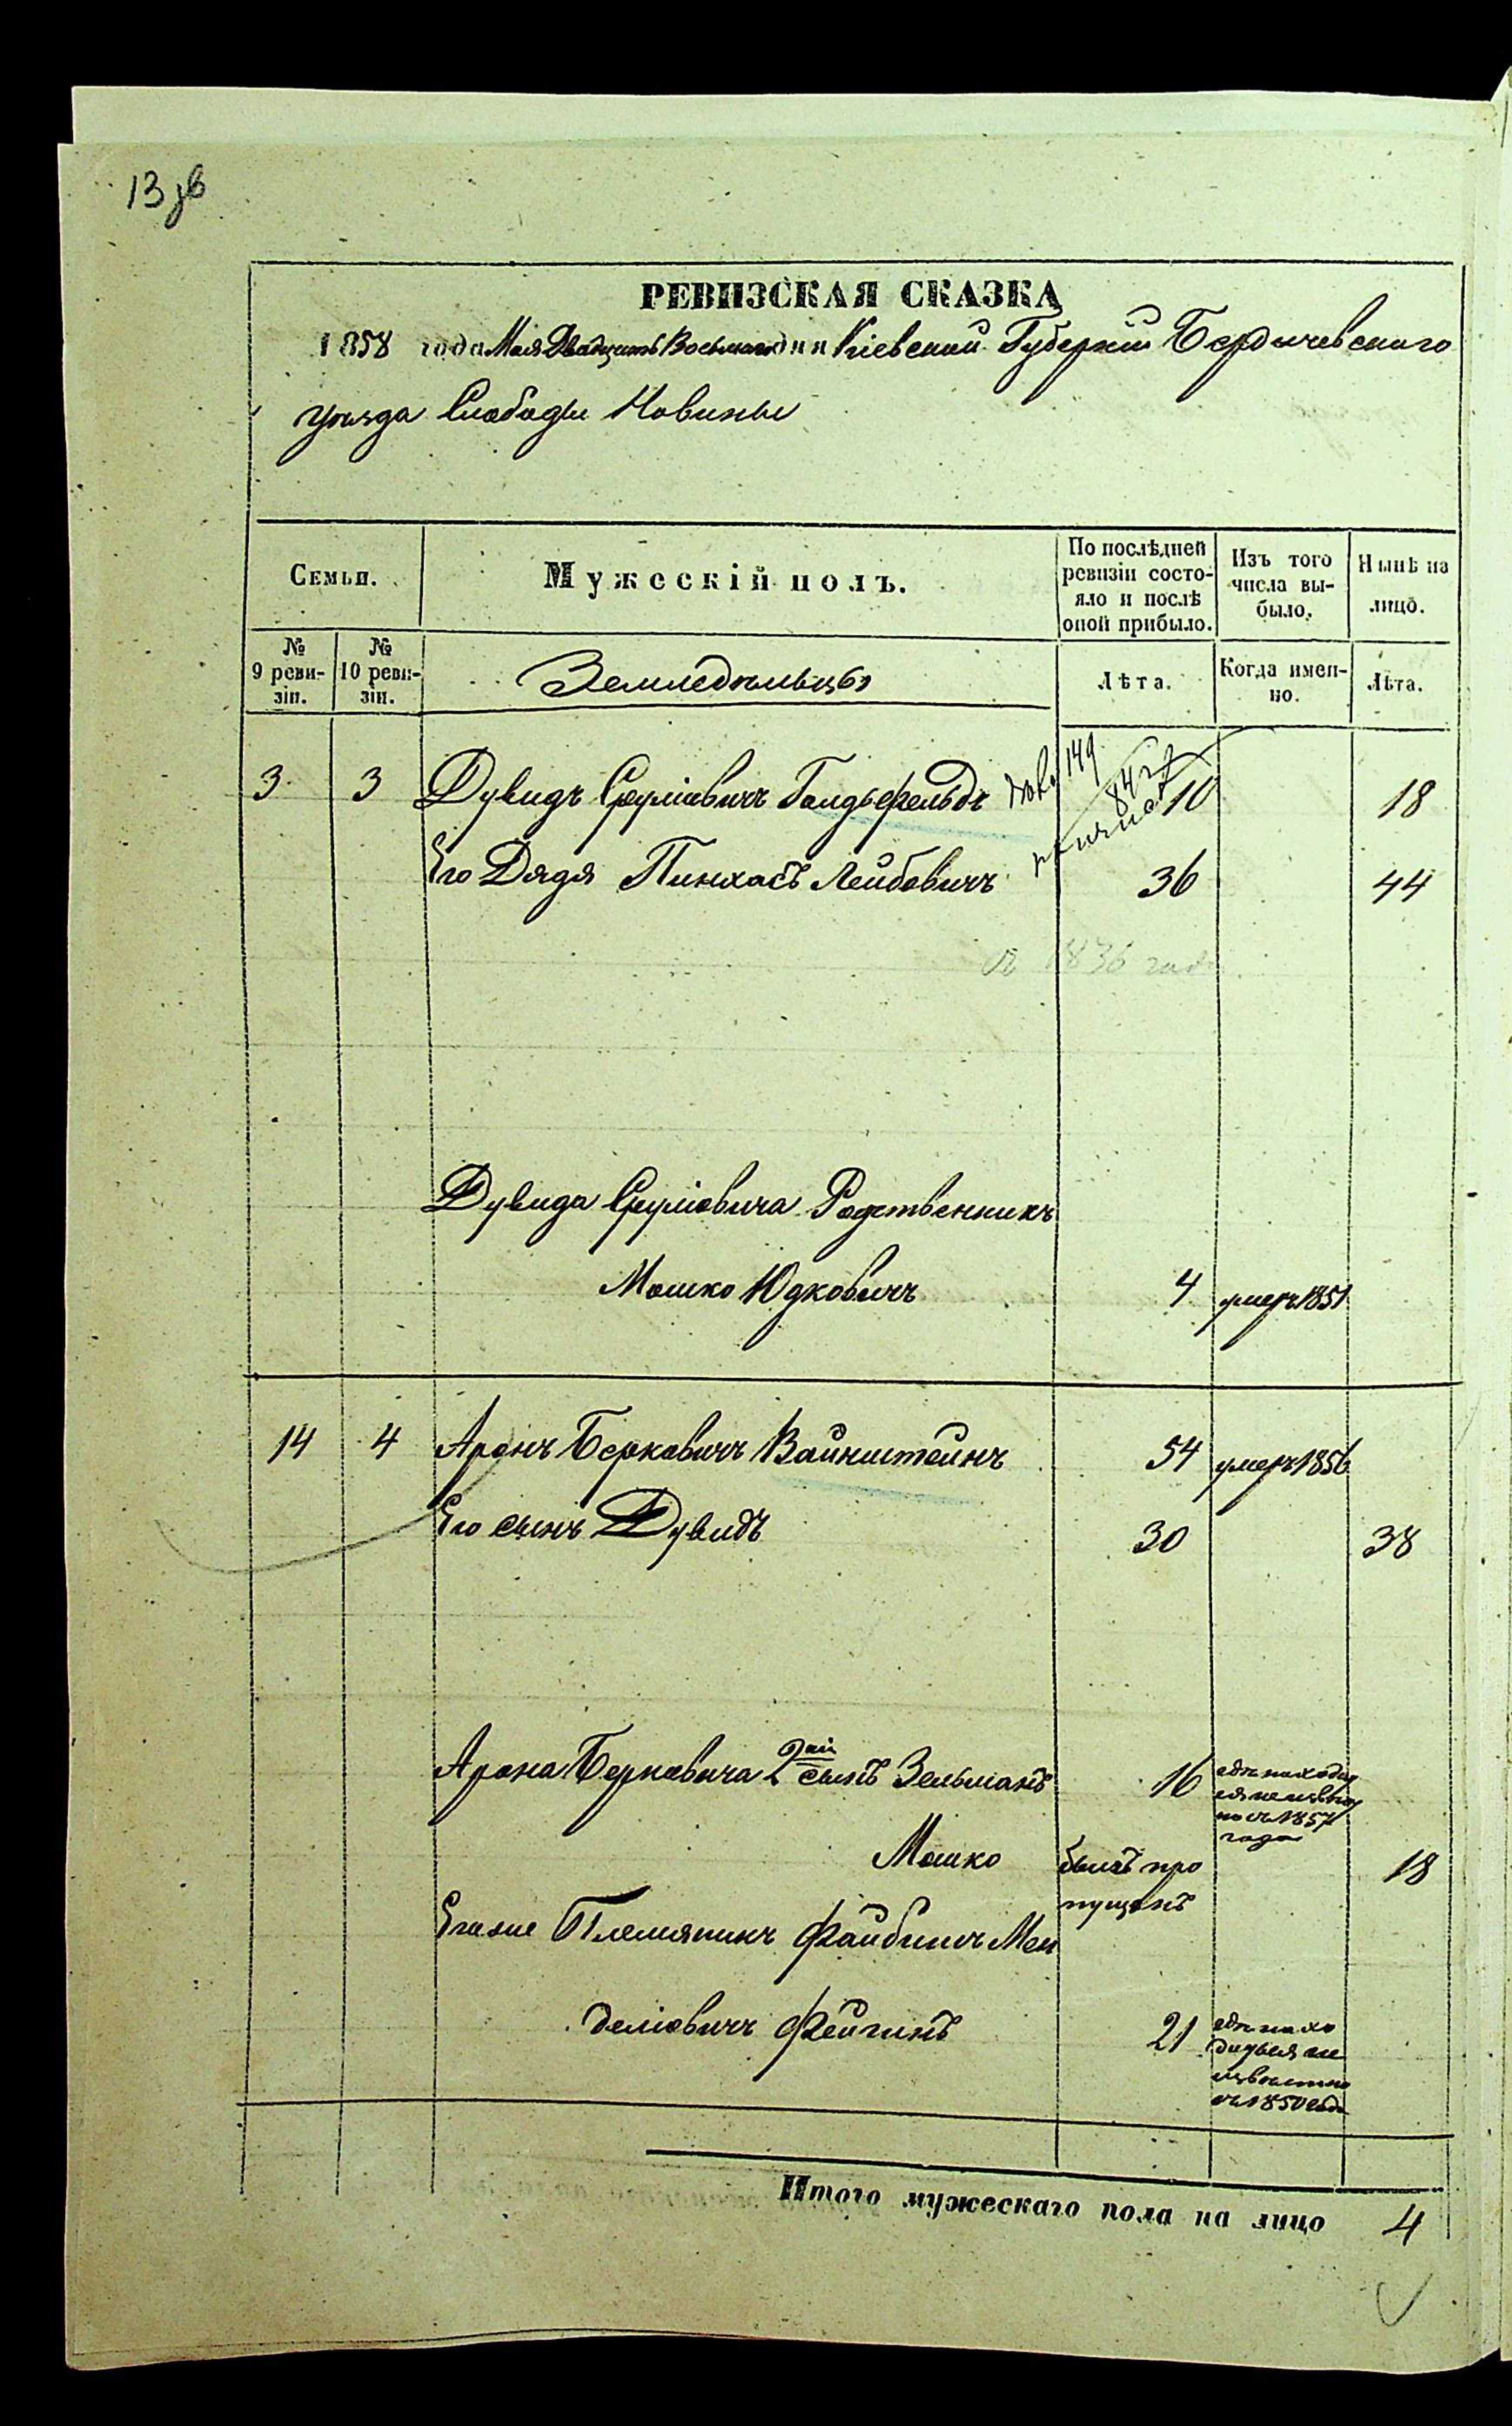 13 зв
РЕВИЗСКАЯ СКАЗКА
1858 года Мая Двадцать Восьмаго дня Кіевской Губерніи Бердичевскаго
уѣзда Слободы Новины
Семьи.
Мужескій полъ.
По послѣдней ревизіи состо-
яло и послѣ оной прибыло.
Изъ того числа вы-
было.
Нынѣ на лицо.
№ 9 реви-
зіи.
№ 10 реви-
зіи.
Земледѣльцы
Лѣта.
Когда имен-
но.
Лѣта.
3 3 Дувидъ Сруліовичъ Гольдфельдъ 149 10 18
Его Дядя Пинхасъ Лейбовичъ 36 44
съ 1836 года
Дувида Сруліовича Родственникъ
Мошко Юдковичъ 4 умеръ 1851
14 4 Аронъ Берковичъ Вайнштейнъ 54 умеръ 1856
Его сынъ Дувидъ 30 38
Арона Берковича 2ой сынъ Зельманъ 16 гдѣ находит
ся неизвѣст
но съ 1857
года
Мошко былъ про
пущенъ 18
Племяникъ Файбишъ Мен
деліовичъ Фейгинъ 21 гдѣ нахо
дится не
извѣстно
съ 1850 года
Итого мужескаго пола на лицо 4